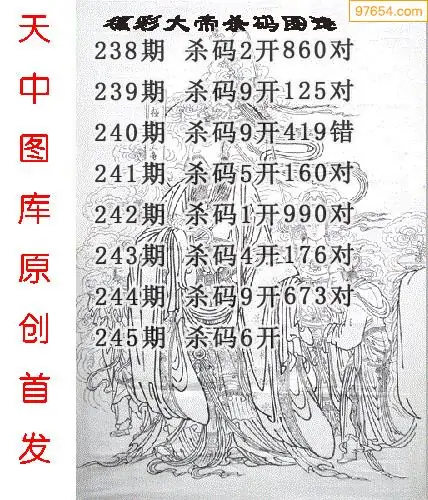 福彩大帝杀码图迷
97654.com
天中图库原创首发
238期 杀码2开860对
239期 杀码9开125对
240期 杀码9开419错
241期 杀码5开160对
242期 杀码1开990对
243期 杀码4开176对
244期 杀码9开673对
245期 杀码6开